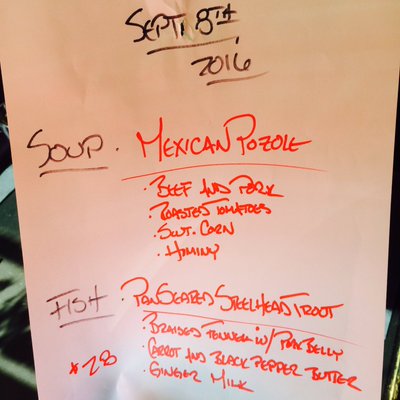 SEPT. 8TH,
2016
SOUP · MEXICAN POZOLE
· BEEF AND PORK
· ROASTED TOMATOES
· SWT. CORN
· HOMINY
FISH · PAN SEARED STEELHEAD TROUT
· BRAISED FENNEL W/ PORK BELLY
$28 · CARROT AND BLACK PEPPER BUTTER
· GINGER MILK